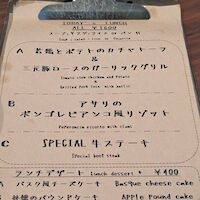 TODAY'S LUNCH
ALL ¥1600
A 若鶏とポテトのカチャトーラ
&
元豚ロースのガーリックグリル
Tomato stew chicken and potato
&
Grilled Pork loin with garlic
B アサリの
ボンゴレビアンコ風リゾット
Peperoncino risotto with clams
C SPECIAL 牛ステーキ
Special beef steak
ランチデザート lunch dessert + ¥400
A バスク風チーズケーキ Basque cheese cake
B 林檎のパウンドケーキ Apple Pound cake